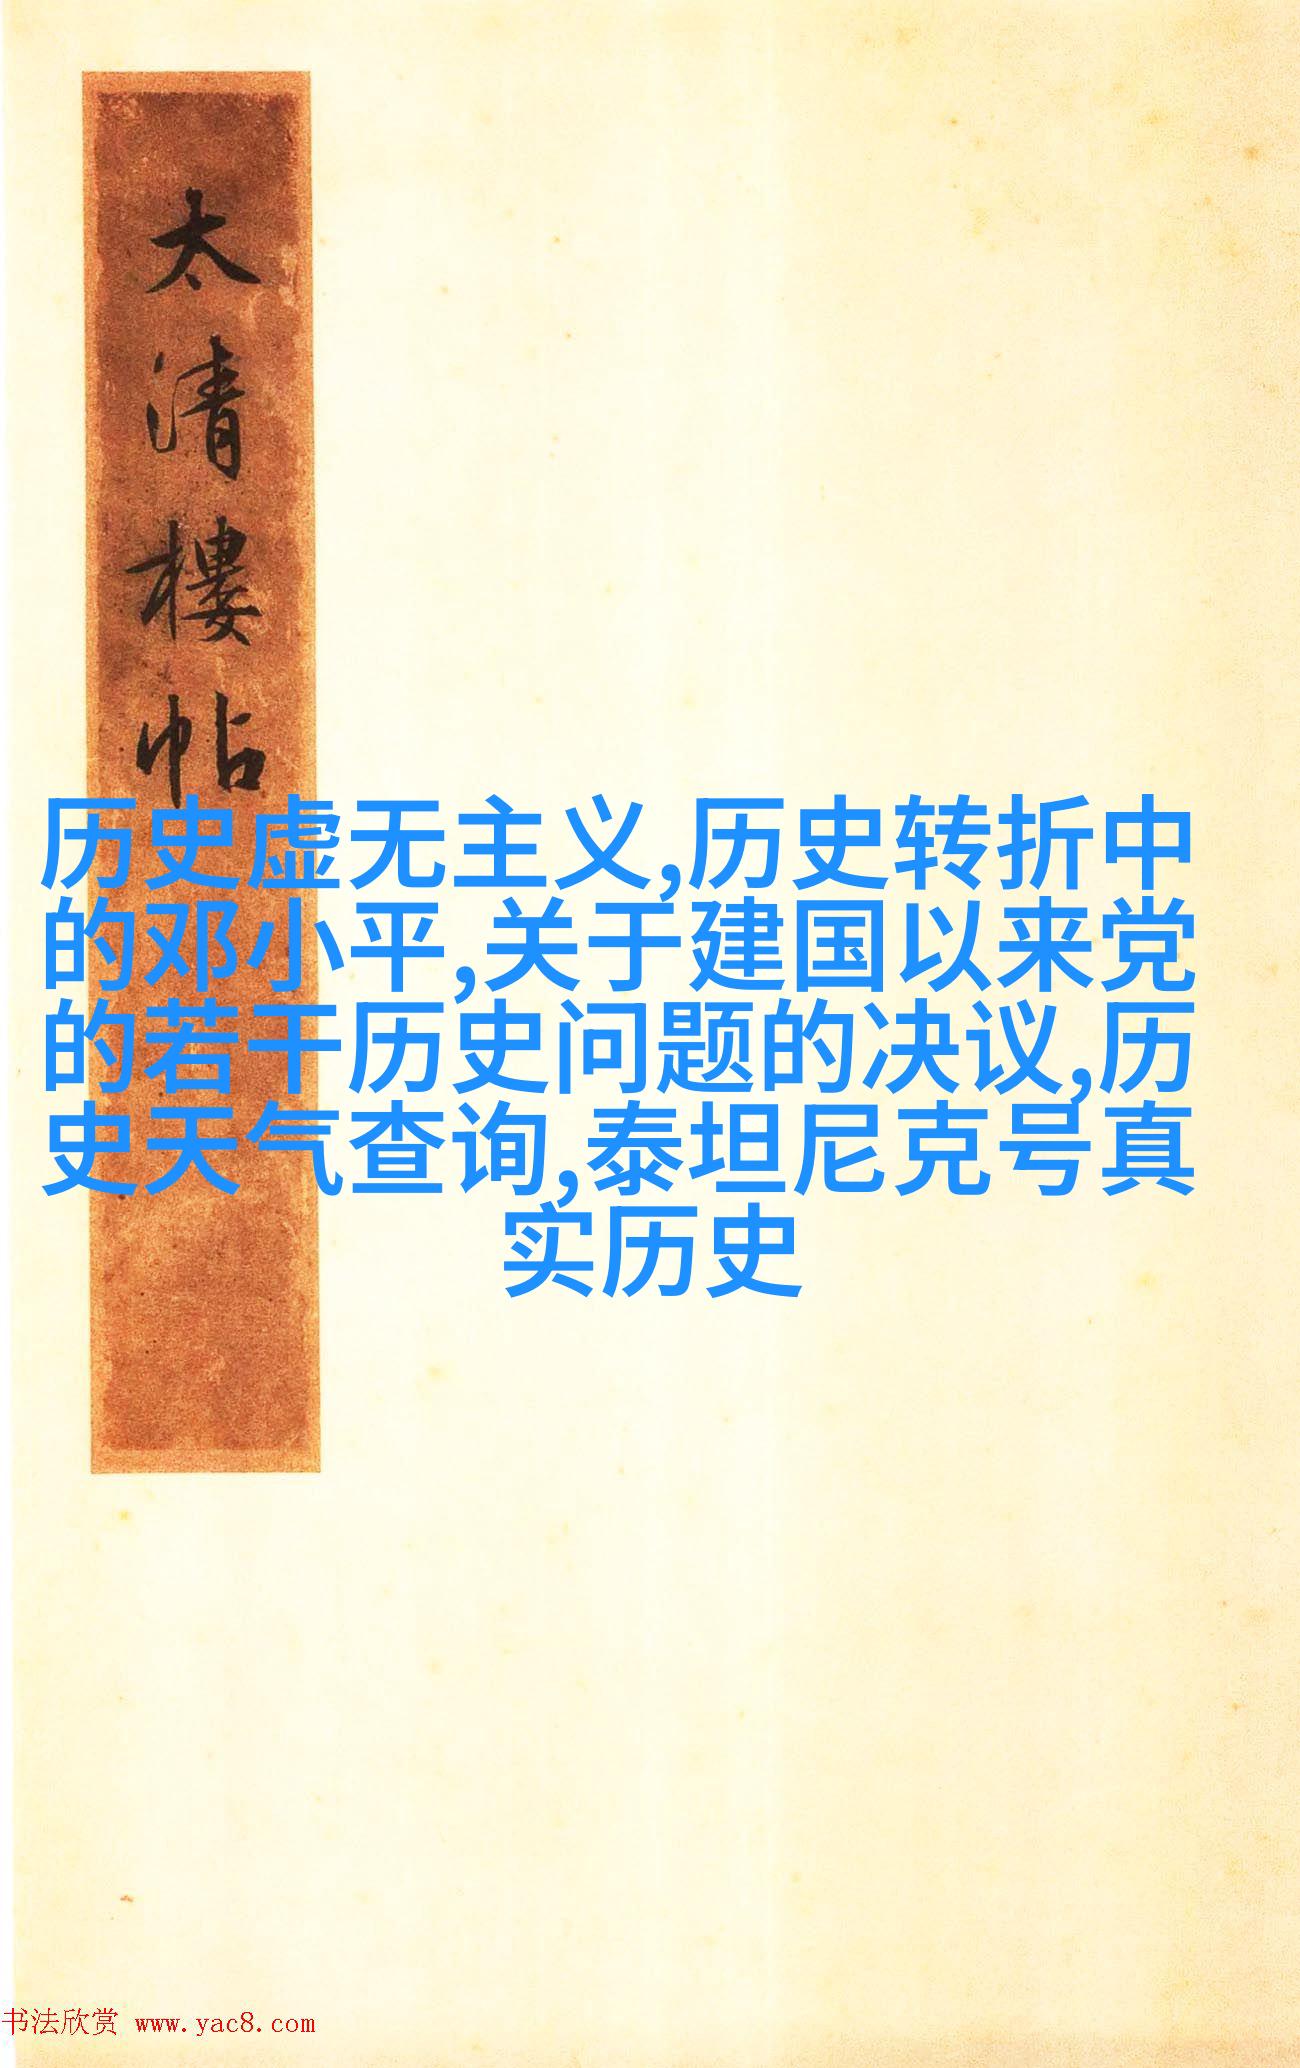 太清樓帖
历史虚无主义,历史转折中
的邓小平,关于建国以来党
的若干历史问题的决议,历
史天气查询,泰坦尼克号真
实历史
书法欣赏 www.yac8.com